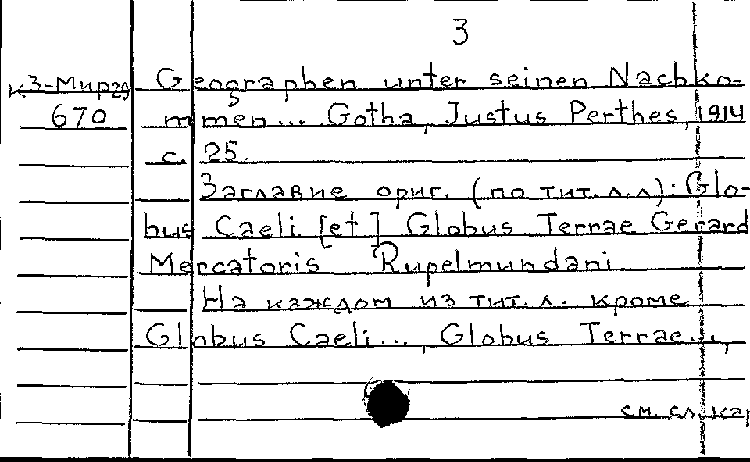 3
к.3-Мирgg Geographen unter seinen Nachko-
670 mmen... Gotha, Justus Perthes, 1914
с. 25.
Заглавие ориг. (по тит.л.л): Glo-
bus Caeli [et] Globus Terrae Gerard
Mercatoris Rupelmundani
На каждом из тит.л. кроме
Globus Caeli..., Globus Terrae...,
см. сл. кар